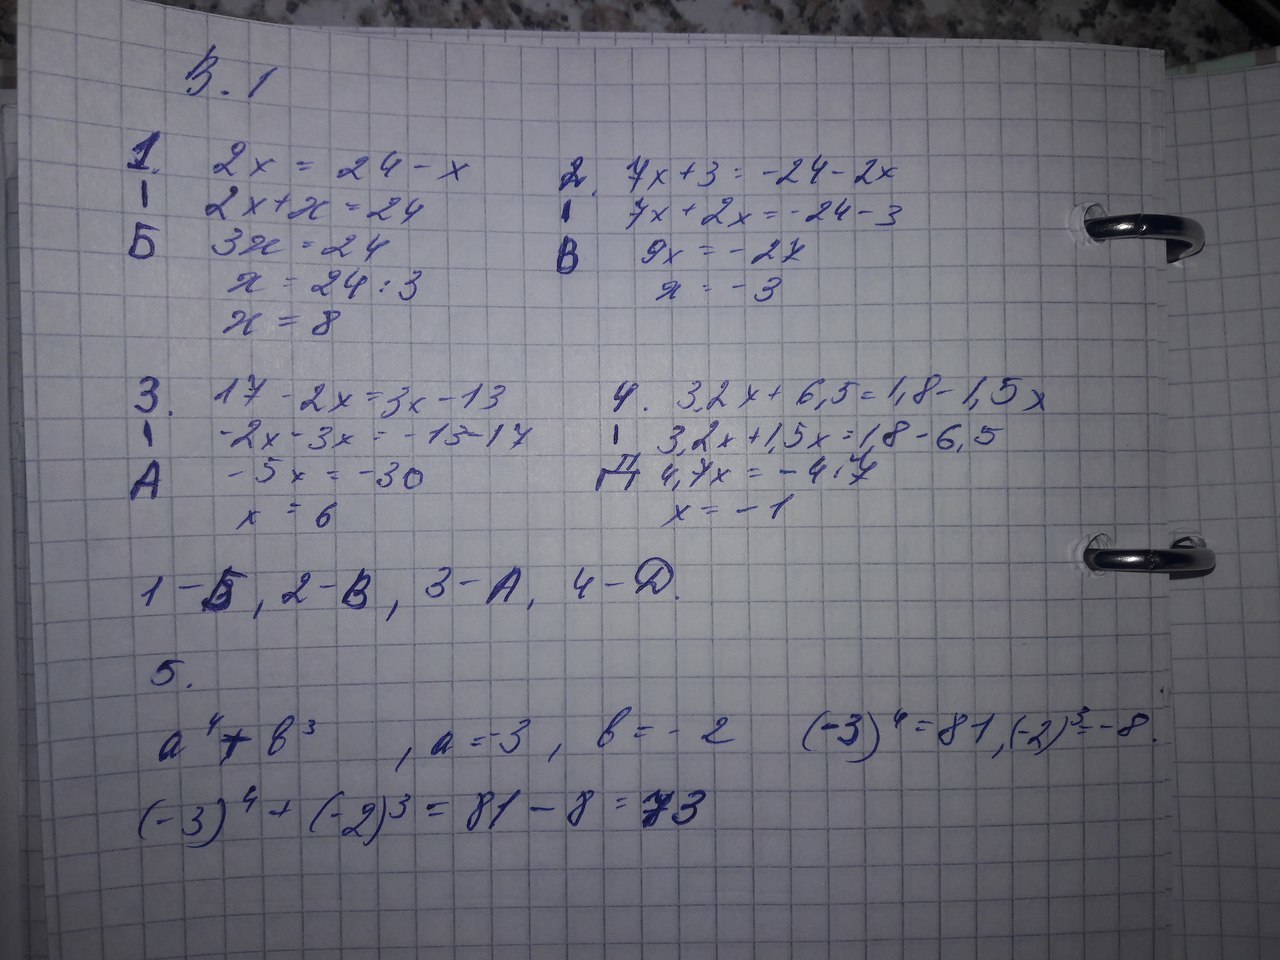 В.1
1. 2x = 24 - x
I 2x + x = 24
Б 3x = 24
x = 24 : 3
x = 8
2. 7x + 3 = -24 - 2x
I 7x + 2x = -24 - 3
В 9x = -27
x = -3
3. 17 - 2x = 3x - 13
I -2x - 3x = -13 - 17
А -5x = -30
x = 6
4. 3,2x + 6,5 = 1,8 - 1,5x
I 3,2x + 1,5x = 1,8 - 6,5
Д 4,7x = -4,7
x = -1
1 - Б, 2 - В, 3 - А, 4 - Д.
5.
a⁴ + b³ , a = -3 , b = -2 (-3)⁴ = 81, (-2)³ = -8.
(-3)⁴ + (-2)³ = 81 - 8 = 73